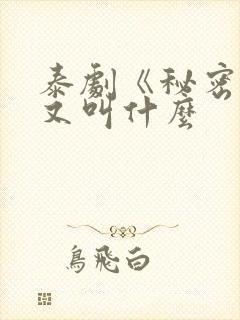 泰劇《秘密
又叫什麼
鳥飛白